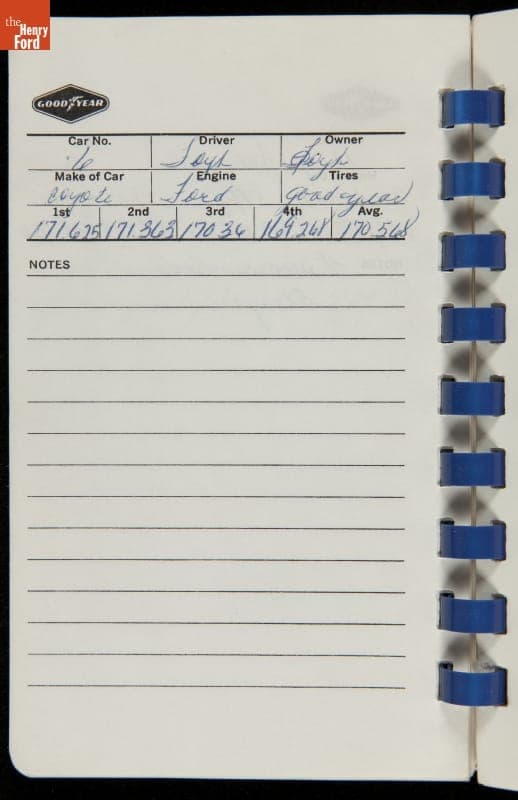 the Henry Ford
GOODYEAR
Car No. Driver Owner
6 Foyt Foyt
Make of Car Engine Tires
Coyote Ford Good year
1st 2nd 3rd 4th Avg.
171.625 171.363 170.36 169.261 170.568
NOTES